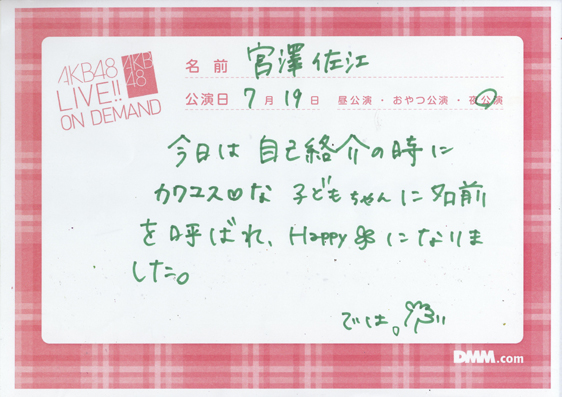 AKB48
LIVE!!
ON DEMAND
AKB
48
名前 宮澤佐江
公演日 7月19日 昼公演・おやつ公演・夜公演
今日は自己紹介の時に
カワユス♡な子どもちゃんに名前
を呼ばれ、Happyになりま
した。
では。
DMM.com